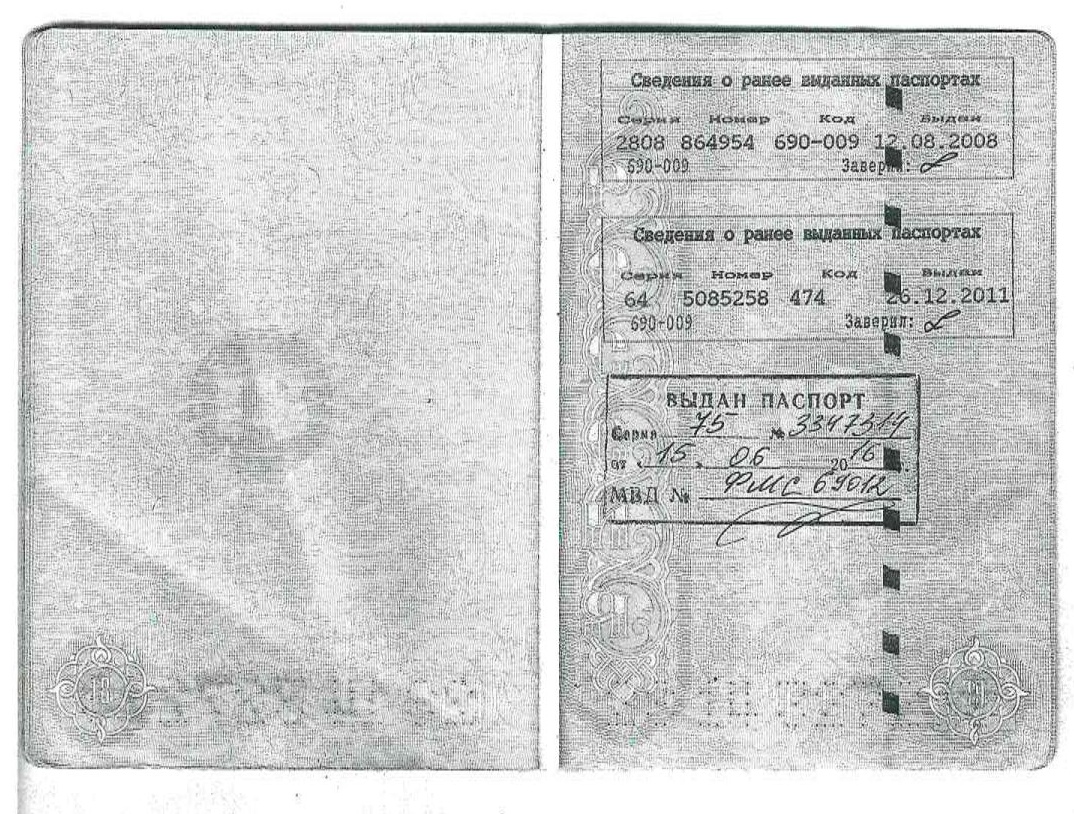 Сведения о ранее выданных паспортах
Серия Номер Код Выдан
2808 864954 690-009 12.08.2008
690-009 Заверил:
Сведения о ранее выданных паспортах
Серия Номер Код Выдан
64 5085258 474 26.12.2011
690-009 Заверил:
ВЫДАН ПАСПОРТ
Серия 75 № 3347314
от « 15 » 06 20 16 г.
МВД № ФМС 69012
18
19